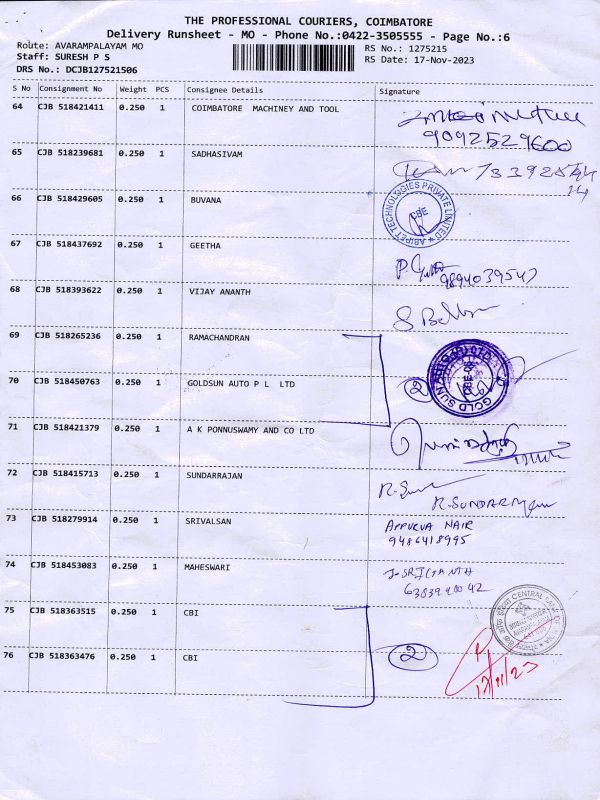 THE PROFESSIONAL COURIERS, COIMBATORE
Delivery Runsheet - MO - Phone No.:0422-3505555 - Page No.:6
Route: AVARAMPALAYAM MO
RS No.: 1275215
Staff: SURESH P S
RS Date: 17-Nov-2023
DRS No.: DCJB127521506
S No Consignment No Weight PCS Consignee Details Signature
64 CJB 518421411 0.250 1 COIMBATORE MACHINEY AND TOOL
9092529600
65 CJB 518239681 0.250 1 SADHASIVAM
66 CJB 518429605 0.250 1 BUVANA
ABIPET TECHNOLOGIES PRIVATE LIMITED
CBE
67 CJB 518437692 0.250 1 GEETHA
9894039547
68 CJB 518393622 0.250 1 VIJAY ANANTH
69 CJB 518265236 0.250 1 RAMACHANDRAN
70 CJB 518450763 0.250 1 GOLDSUN AUTO P L LTD
2
GOLD SUN
71 CJB 518421379 0.250 1 A K PONNUSWAMY AND CO LTD
72 CJB 518415713 0.250 1 SUNDARRAJAN
73 CJB 518279914 0.250 1 SRIVALSAN
APPURVA NAIR
9486418995
74 CJB 518453083 0.250 1 MAHESWARI
75 CJB 518363515 0.250 1 CBI
CENTRAL BANK
76 CJB 518363476 0.250 1 CBI
2
17/11/23